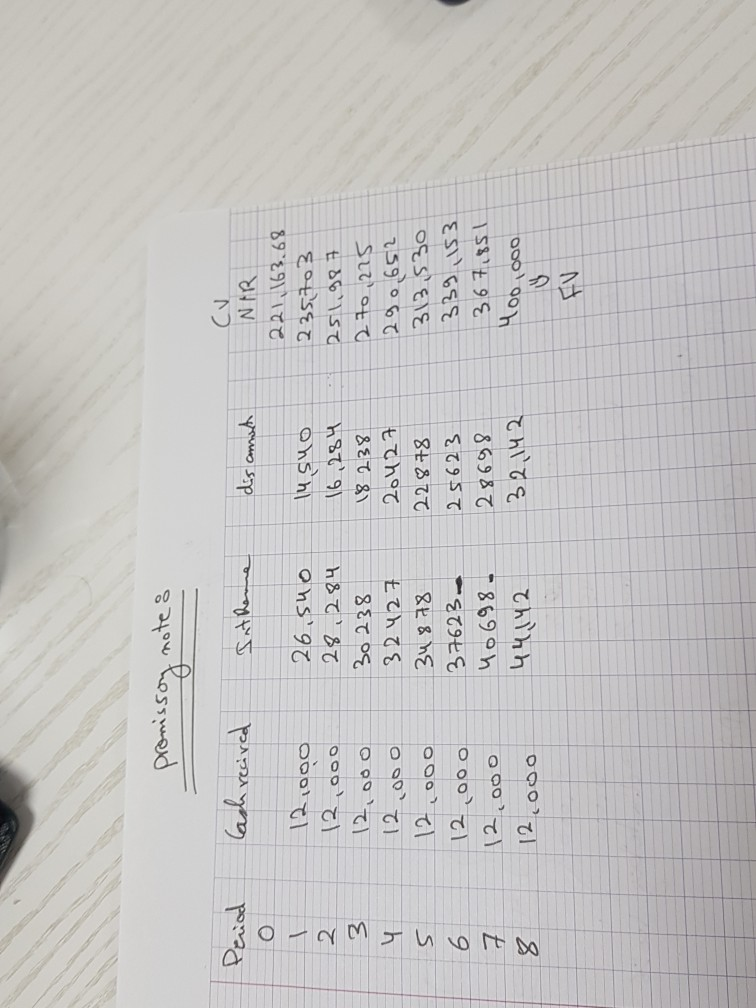 promissory note:
Period Cash recived Int Rome dis amott CV NIR
0 221,163.68
1 12,000 26,540 14,540 235,703
2 12,000 28,284 16,284 251,987
3 12,000 30238 18238 270,225
4 12,000 32427 20427 290,652
5 12,000 34878 22878 313,530
6 12,000 37623 25623 339,153
7 12,000 40698 28698 367,851
8 12,000 44,142 32,142 400,000
FV